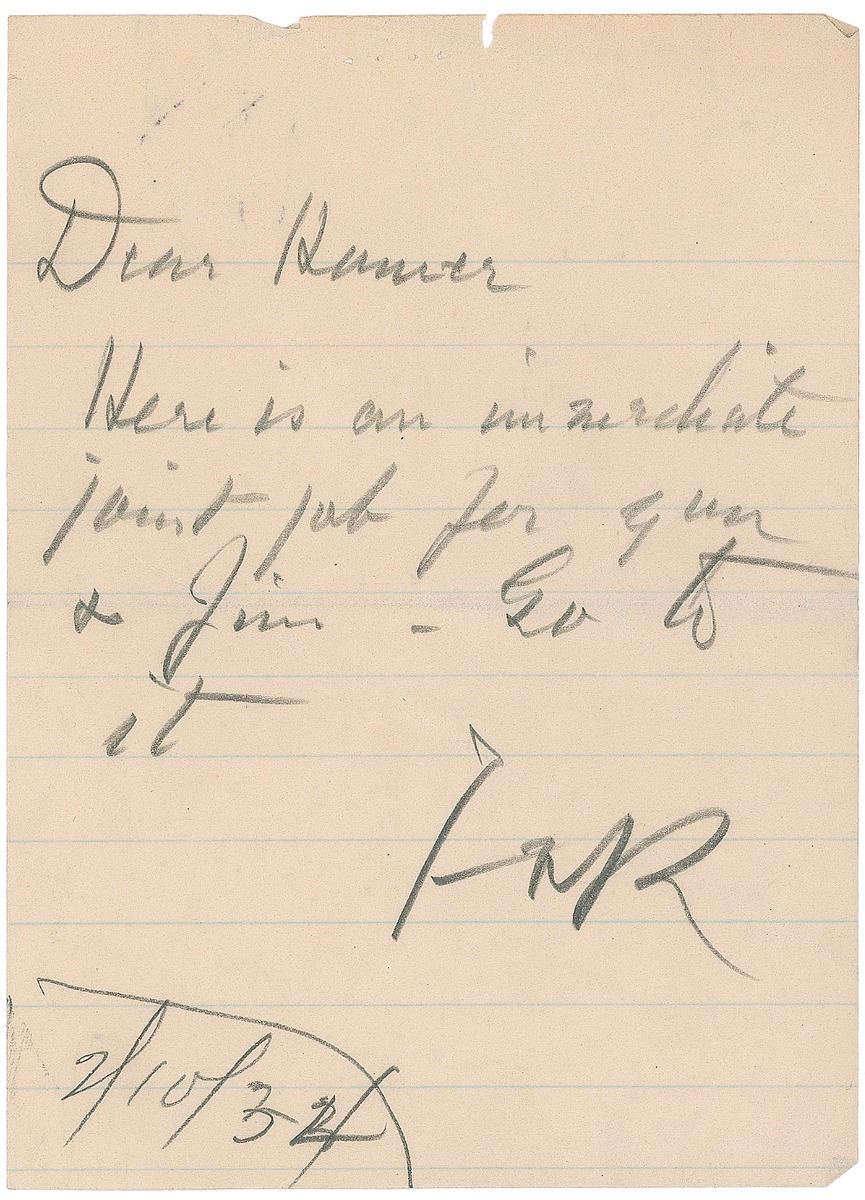 Dear Homer
Here is an immediate
joint job for you
& Jim - Go to
it
FDR
2/10/34